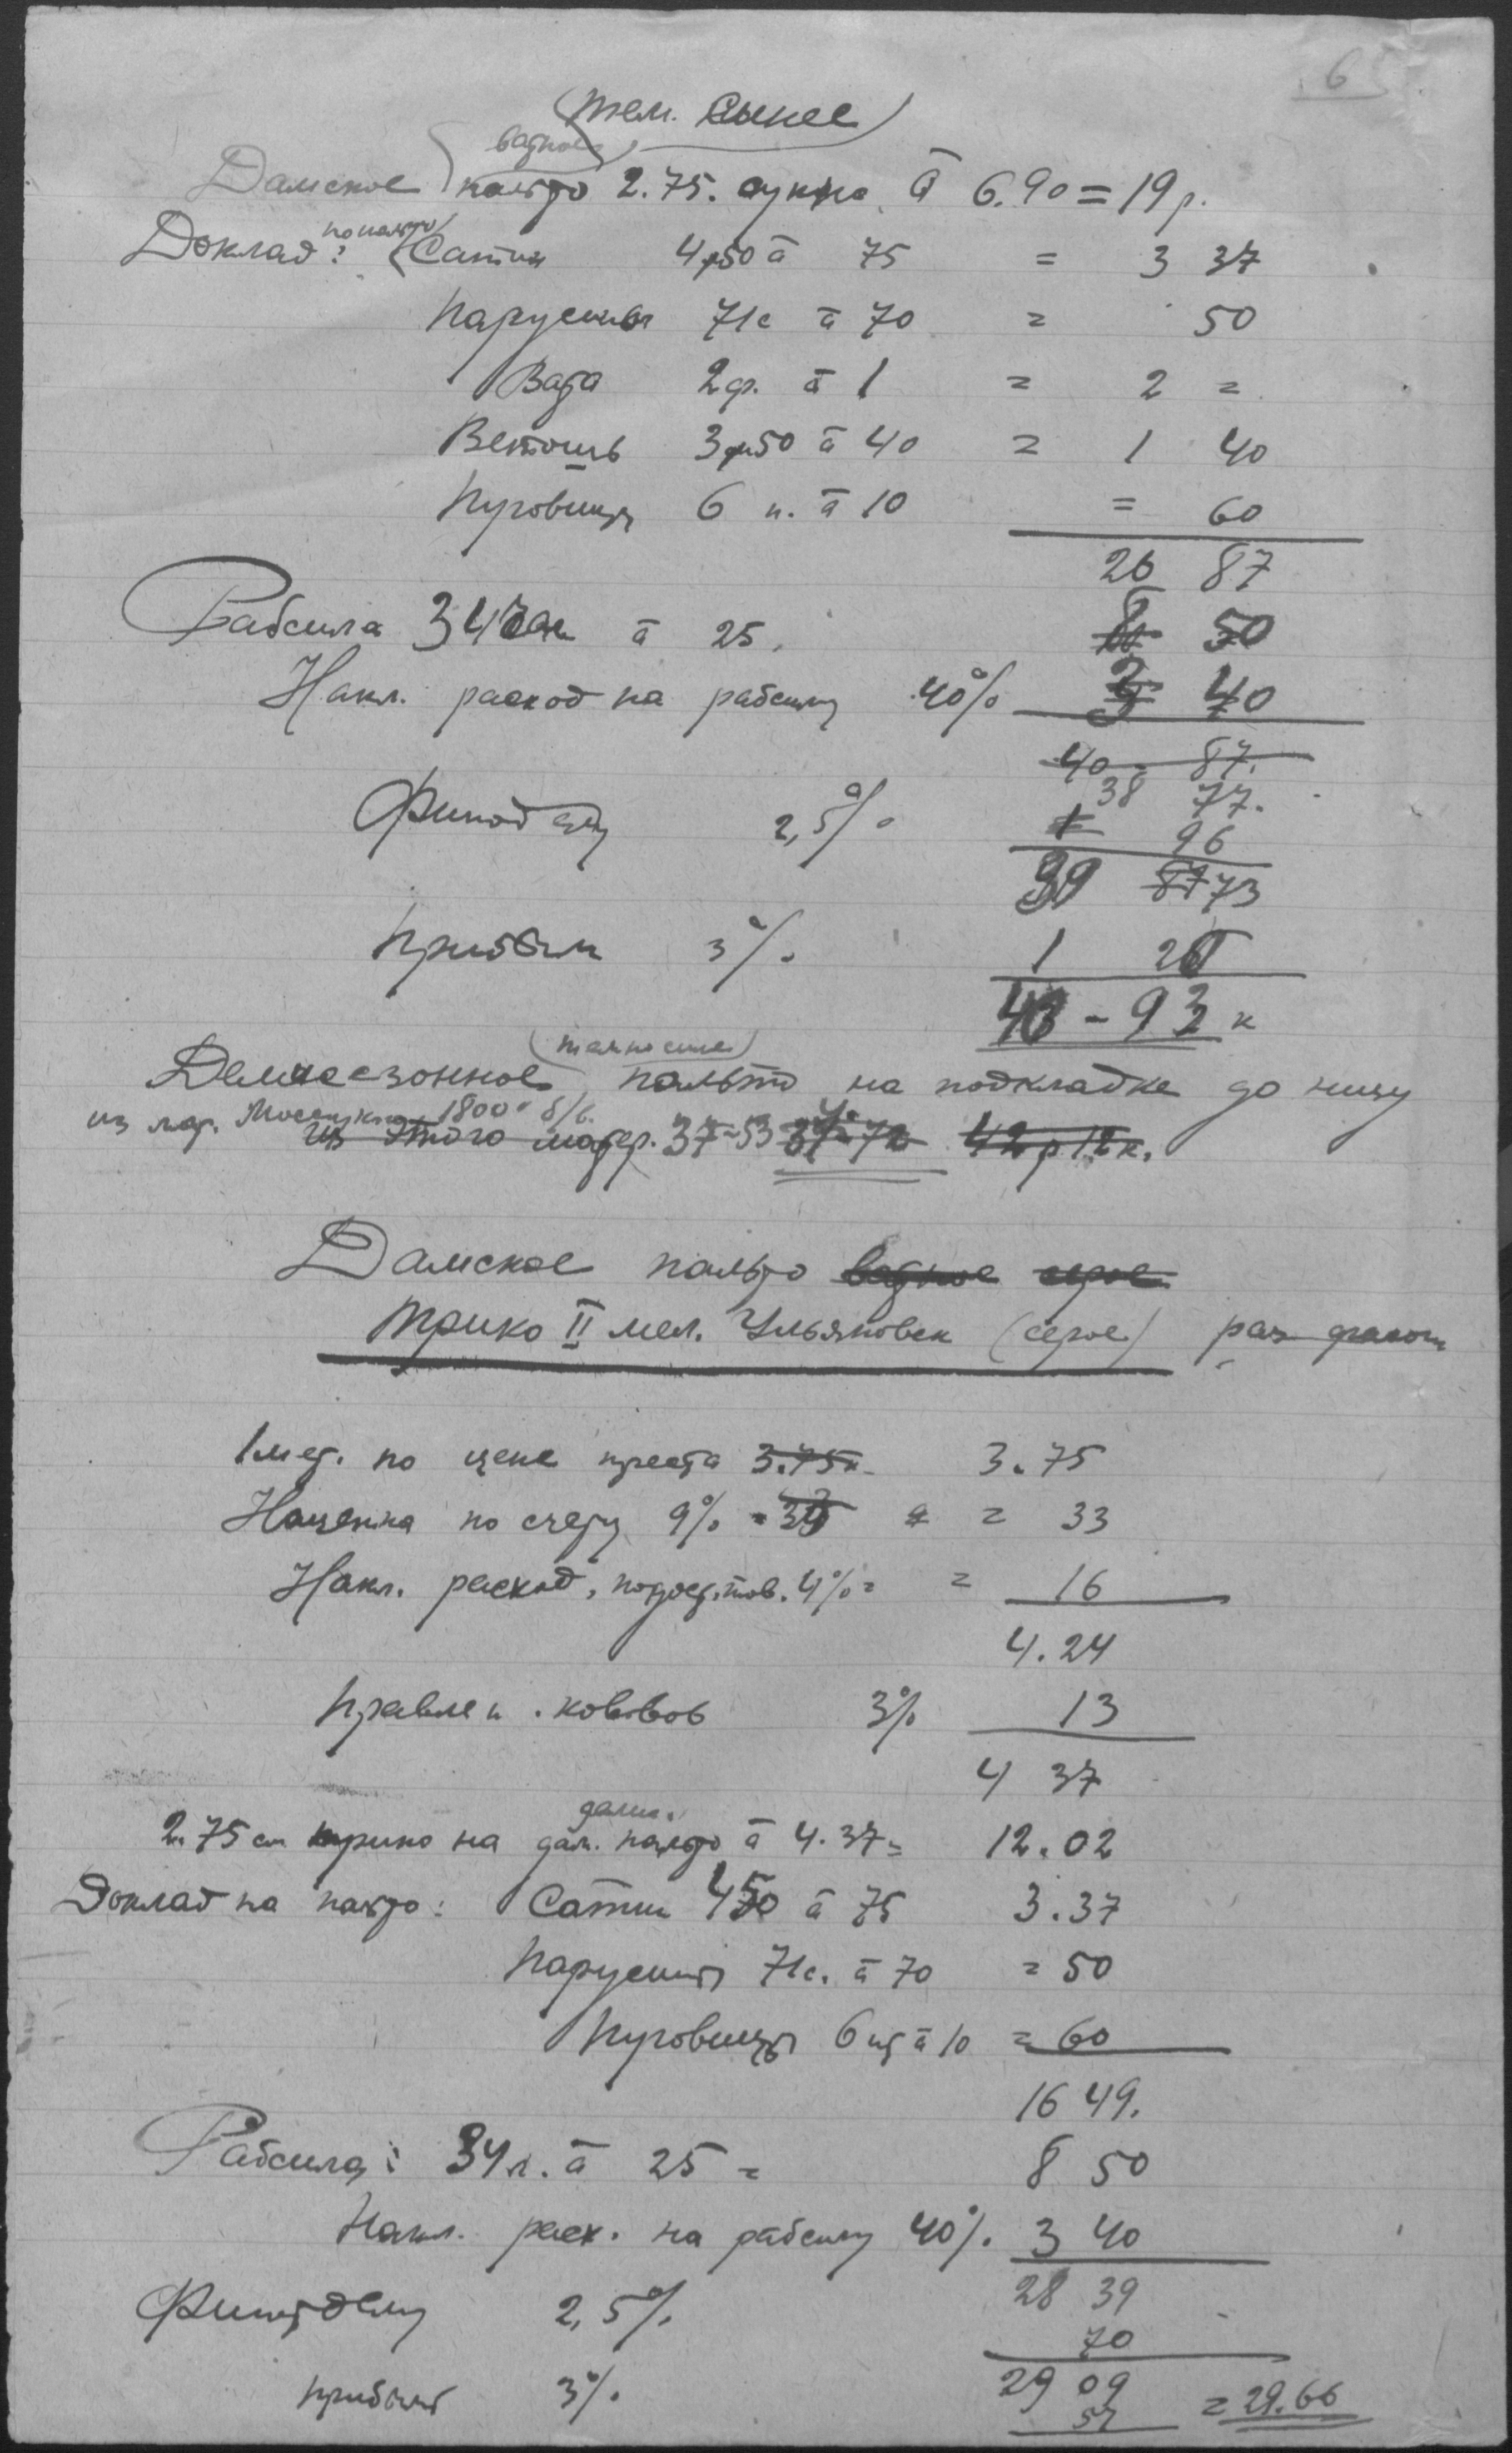 6
(тем. синее)
ватное
Дамское пальто 2.75. сукно à 6.90 = 19 р.
Доклад: по пальто Сатин 4м50 à 75 = 3 37
Парусины 71с à 70 = 50
Вата 2ф. à 1 = 2 =
Ветошь 3м50 à 40 = 1 40
Пуговицы 6 п. à 10 = 60
26 87
Рабсила 34 à 25. 8 50
Накл. расход на рабсилу 40% 3 40
40 - 87.
38 77.
2,5% 96
39 87 73
Прибыли 3% 1 20
40 - 93 к
(темносинее)
Демисезонное пальто на подкладке до низу
из мат. 1800
из этого матер. 37-53 42 р 12 к.
Дамское пальто ватное серое
Трико II мел. Ульяновск (серое)
1 мет. по цене треста 3.75к. 3.75
Наценка по счету 9% = 33
Накл. расход. 4% = = 16
4.24
3% 13
4 37
дамс.
2.75 см трико на дам. пальто à 4.37 = 12.02
Доклад на пальто: Сатин 450 à 75 3.37
Парусины 71с. à 70 = 50
Пуговицы 6 шт à 10 = 60
16 49.
Рабсила: 34 à 25 = 8 50
Накл. расх. на рабсилу 40% 3 40
28 39
Финотделу 2,5%
70
прибыли 3% 29 09 = 29.66
57